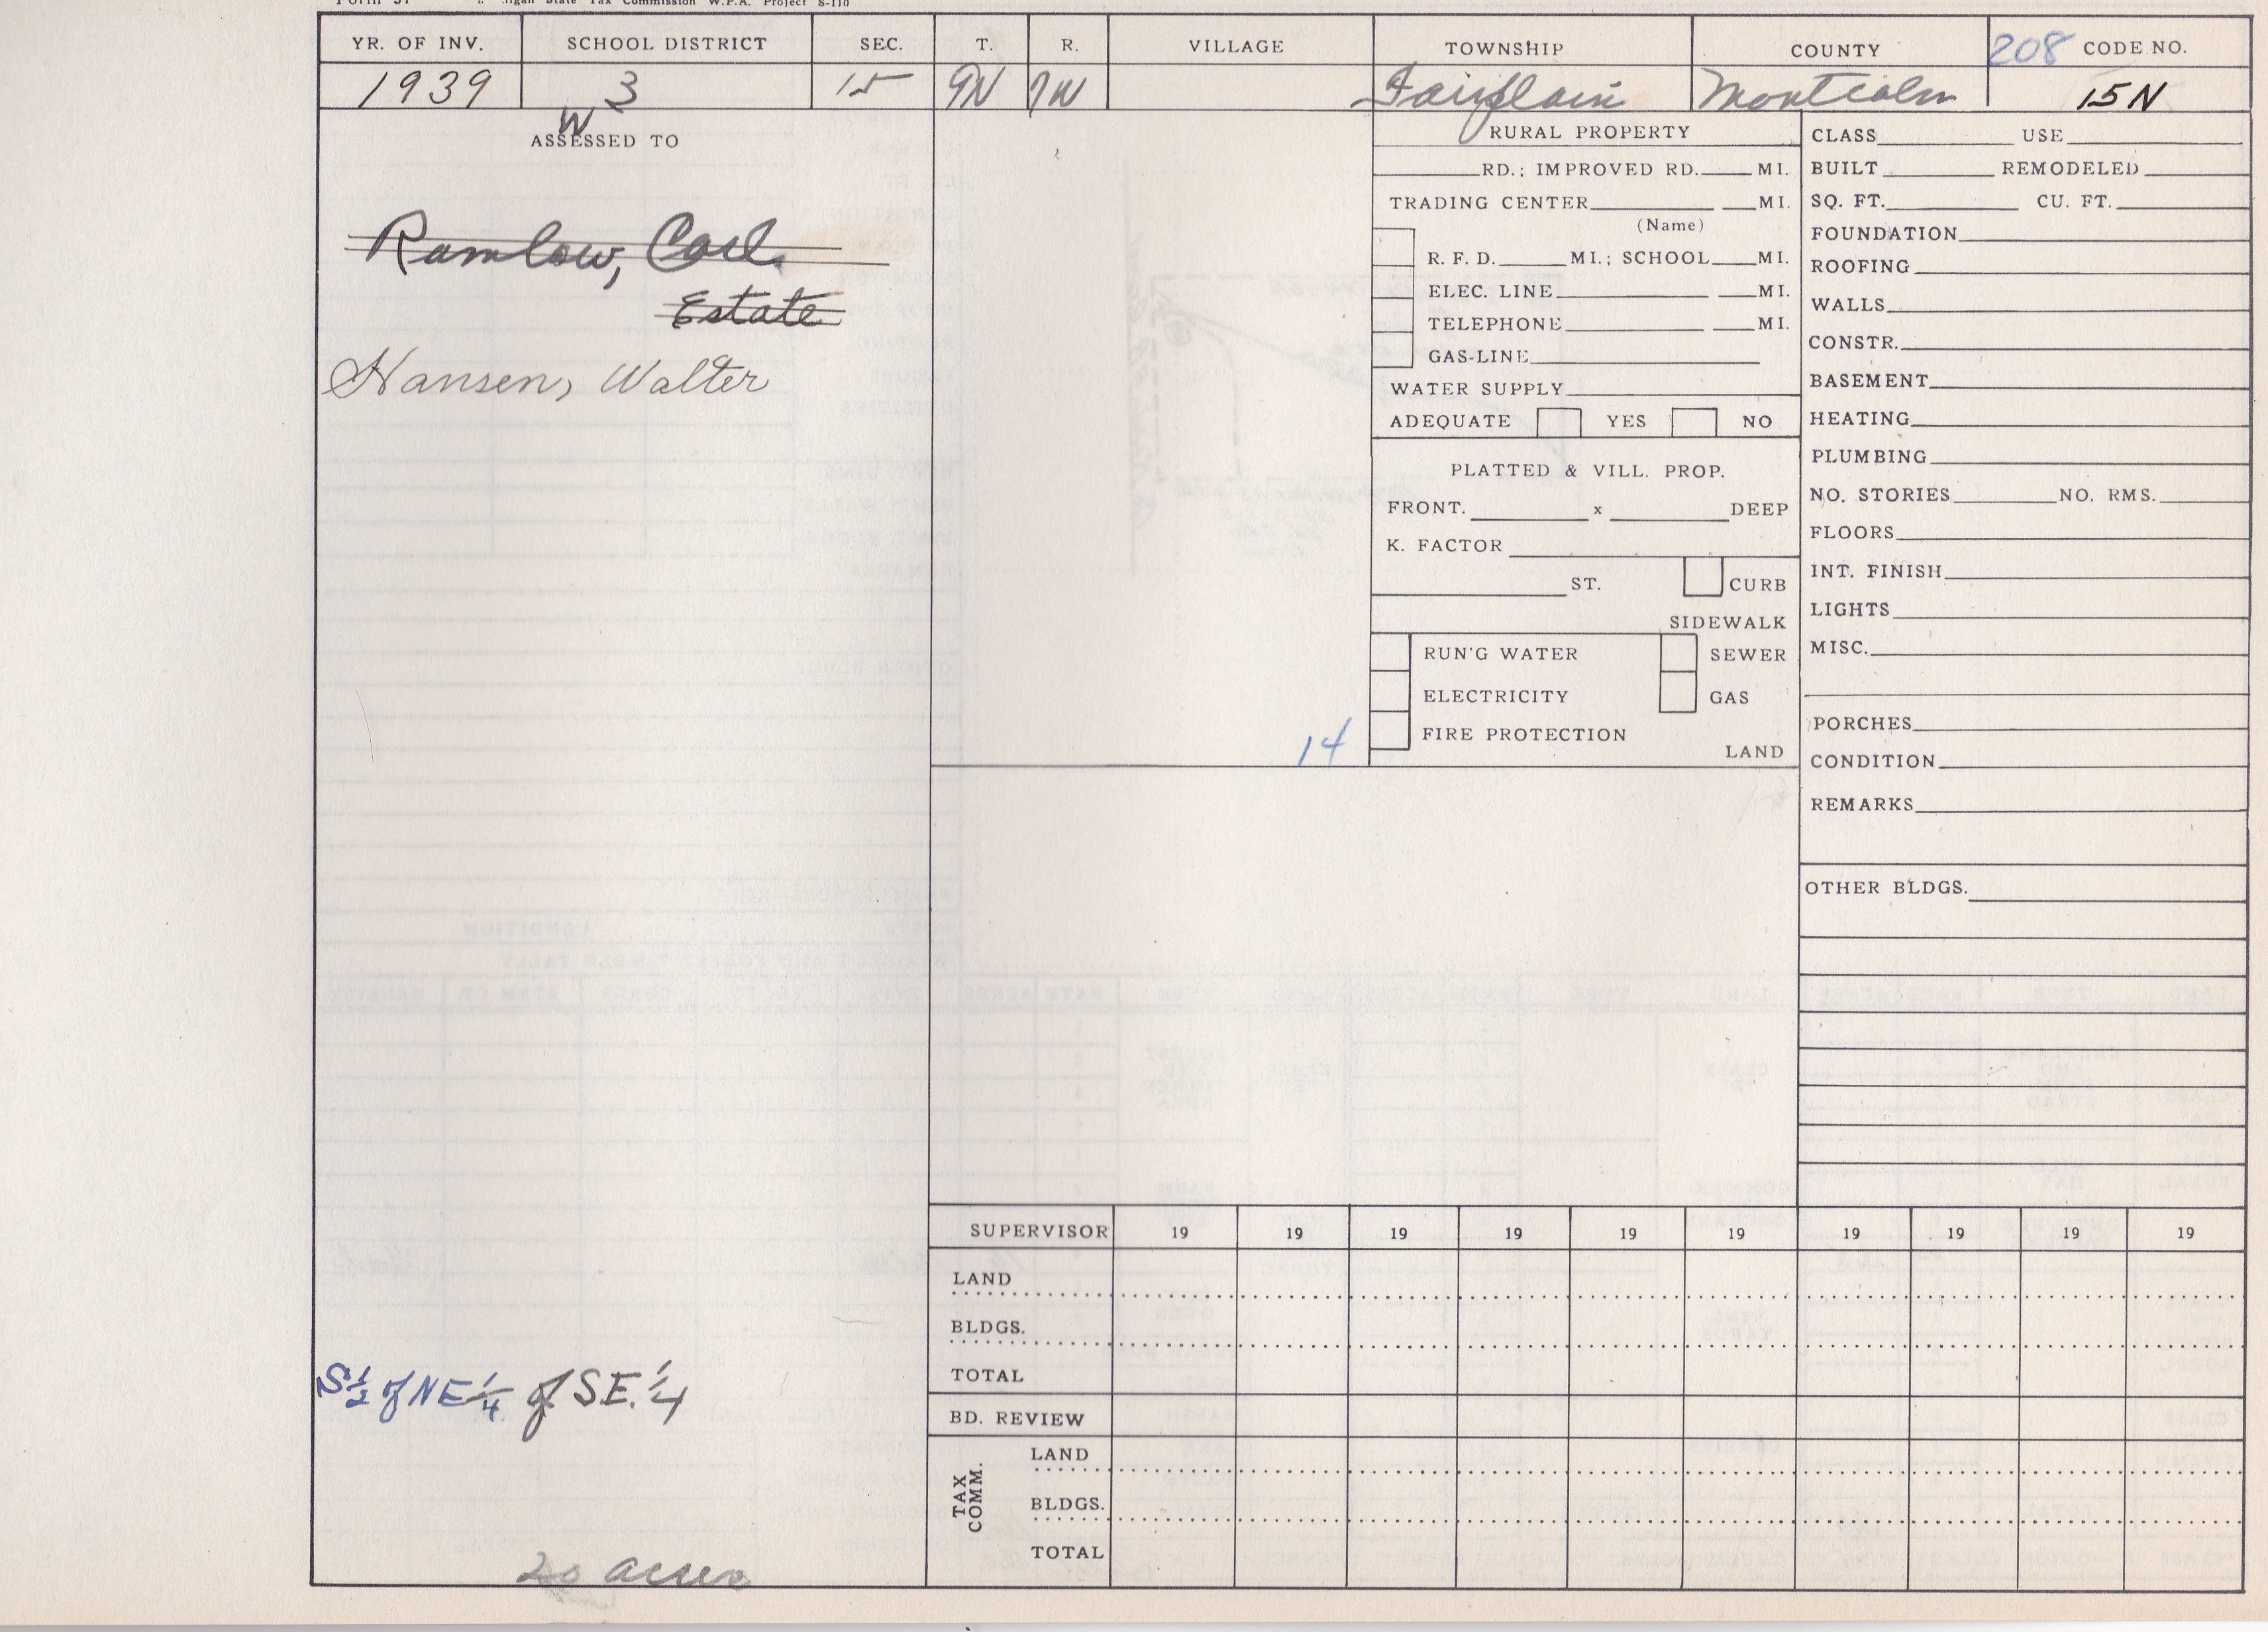 Tax Commission W.P.A. Project S-110
YR. OF INV. SCHOOL DISTRICT SEC. T. R. VILLAGE TOWNSHIP COUNTY 208 CODE NO.
1939 3 15 9N 7W Fairplain Montcalm 15N
W
ASSESSED TO
Ramlow, Carl
Estate
Hansen, Walter
S 1/2 of NE 1/4 of S.E. 1/4
20 acres
14
RURAL PROPERTY
RD.; IMPROVED RD. MI.
TRADING CENTER MI.
(Name)
R. F. D. MI.; SCHOOL MI.
ELEC. LINE MI.
TELEPHONE MI.
GAS-LINE
WATER SUPPLY
ADEQUATE YES NO
PLATTED & VILL. PROP.
FRONT. x DEEP
K. FACTOR
ST. CURB
SIDEWALK
RUN'G WATER SEWER
ELECTRICITY GAS
FIRE PROTECTION
LAND
CLASS USE
BUILT REMODELED
SQ. FT. CU. FT.
FOUNDATION
ROOFING
WALLS
CONSTR.
BASEMENT
HEATING
PLUMBING
NO. STORIES NO. RMS.
FLOORS
INT. FINISH
LIGHTS
MISC.
PORCHES
CONDITION
REMARKS
OTHER BLDGS.
SUPERVISOR 19 19 19 19 19 19 19 19 19 19
LAND
BLDGS.
TOTAL
BD. REVIEW
TAX COMM.
LAND
BLDGS.
TOTAL